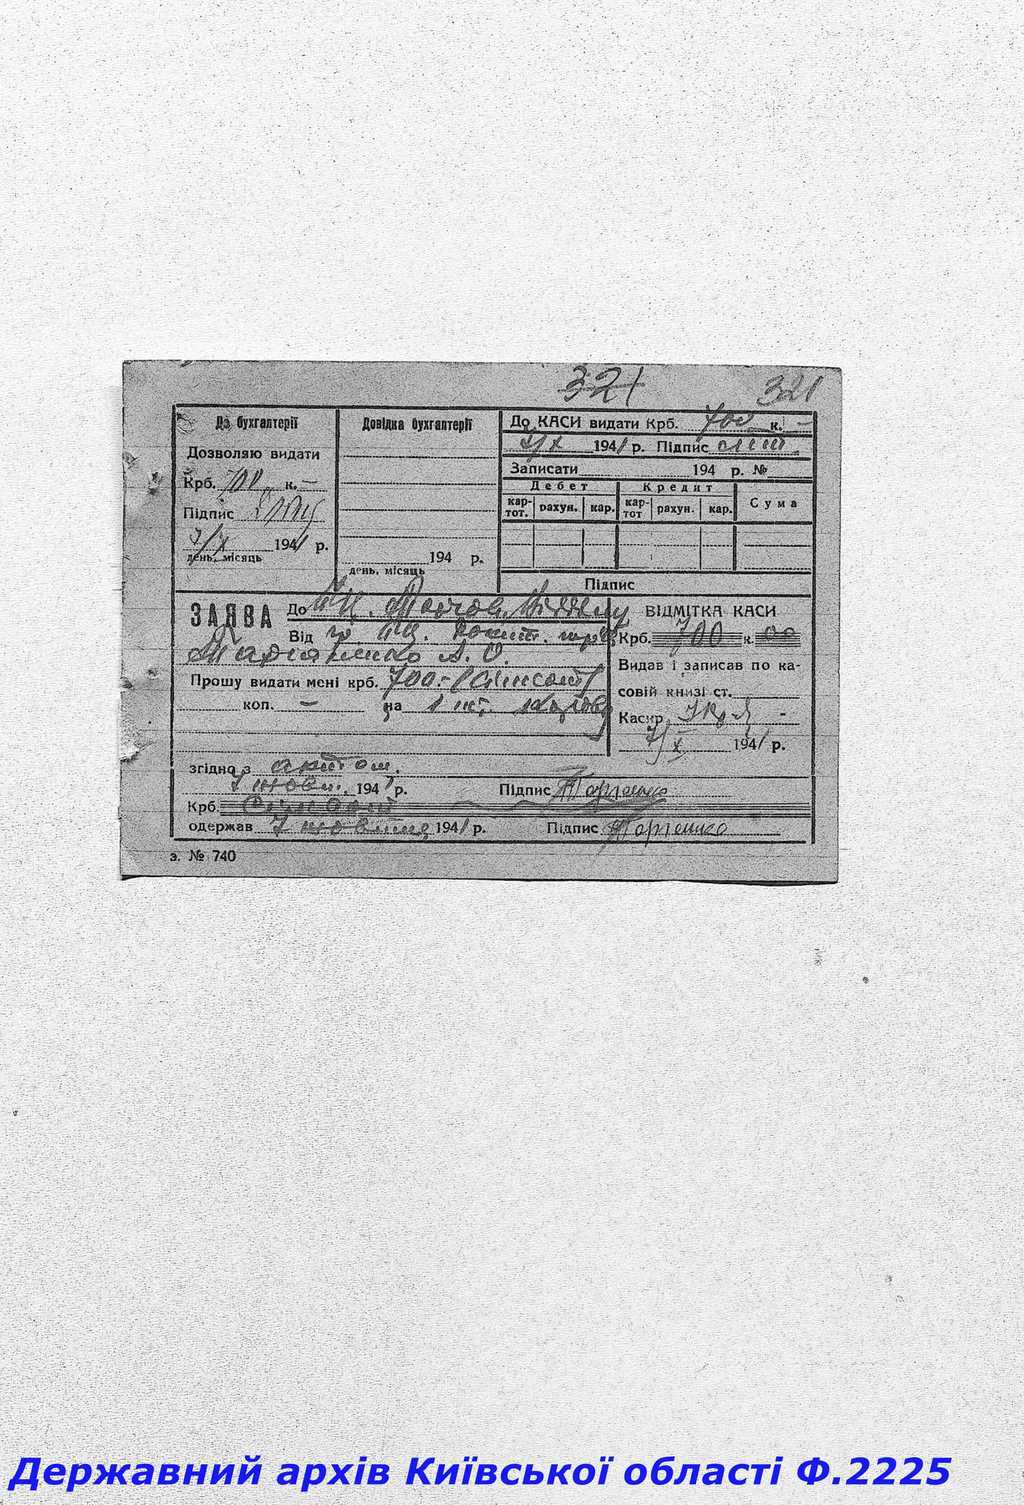 321 321
До бухгалтерії
Дозволяю видати
Крб. 700 к. –
Підпис
7/X 1941 р.
день, місяць
Довідка бухгалтерії
194 р.
день, місяць
До КАСИ видати Крб. 700 к. –
7/X 1941 р. Підпис
Записати 194 р. №
Дебет Кредит
кар-тот. рахун. кар. кар-тот рахун. кар. Сума
Підпис
ЗАЯВА До
Від гр.
А. О.
Прошу видати мені крб. 700.- (сімсот)
коп. – на 1 шт.
згідно з актом.
7 жовт. 1941 р. Підпис
Крб. Сімсот
одержав 7 жовтня 1941 р. Підпис
ВІДМІТКА КАСИ
Крб. 700 к. 00
Видав і записав по ка-
совій книзі ст.
Касир
7/X 1941 р.
з. № 740
Державний архів Київської області Ф.2225